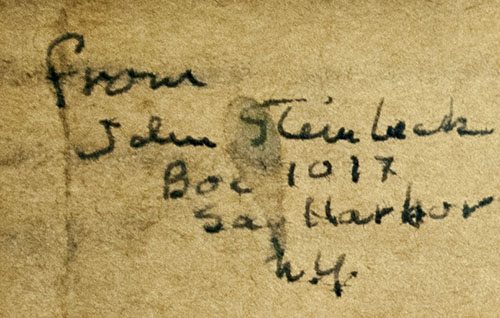 from
John Steinbeck
Box 1017
Sag Harbor
N.Y.